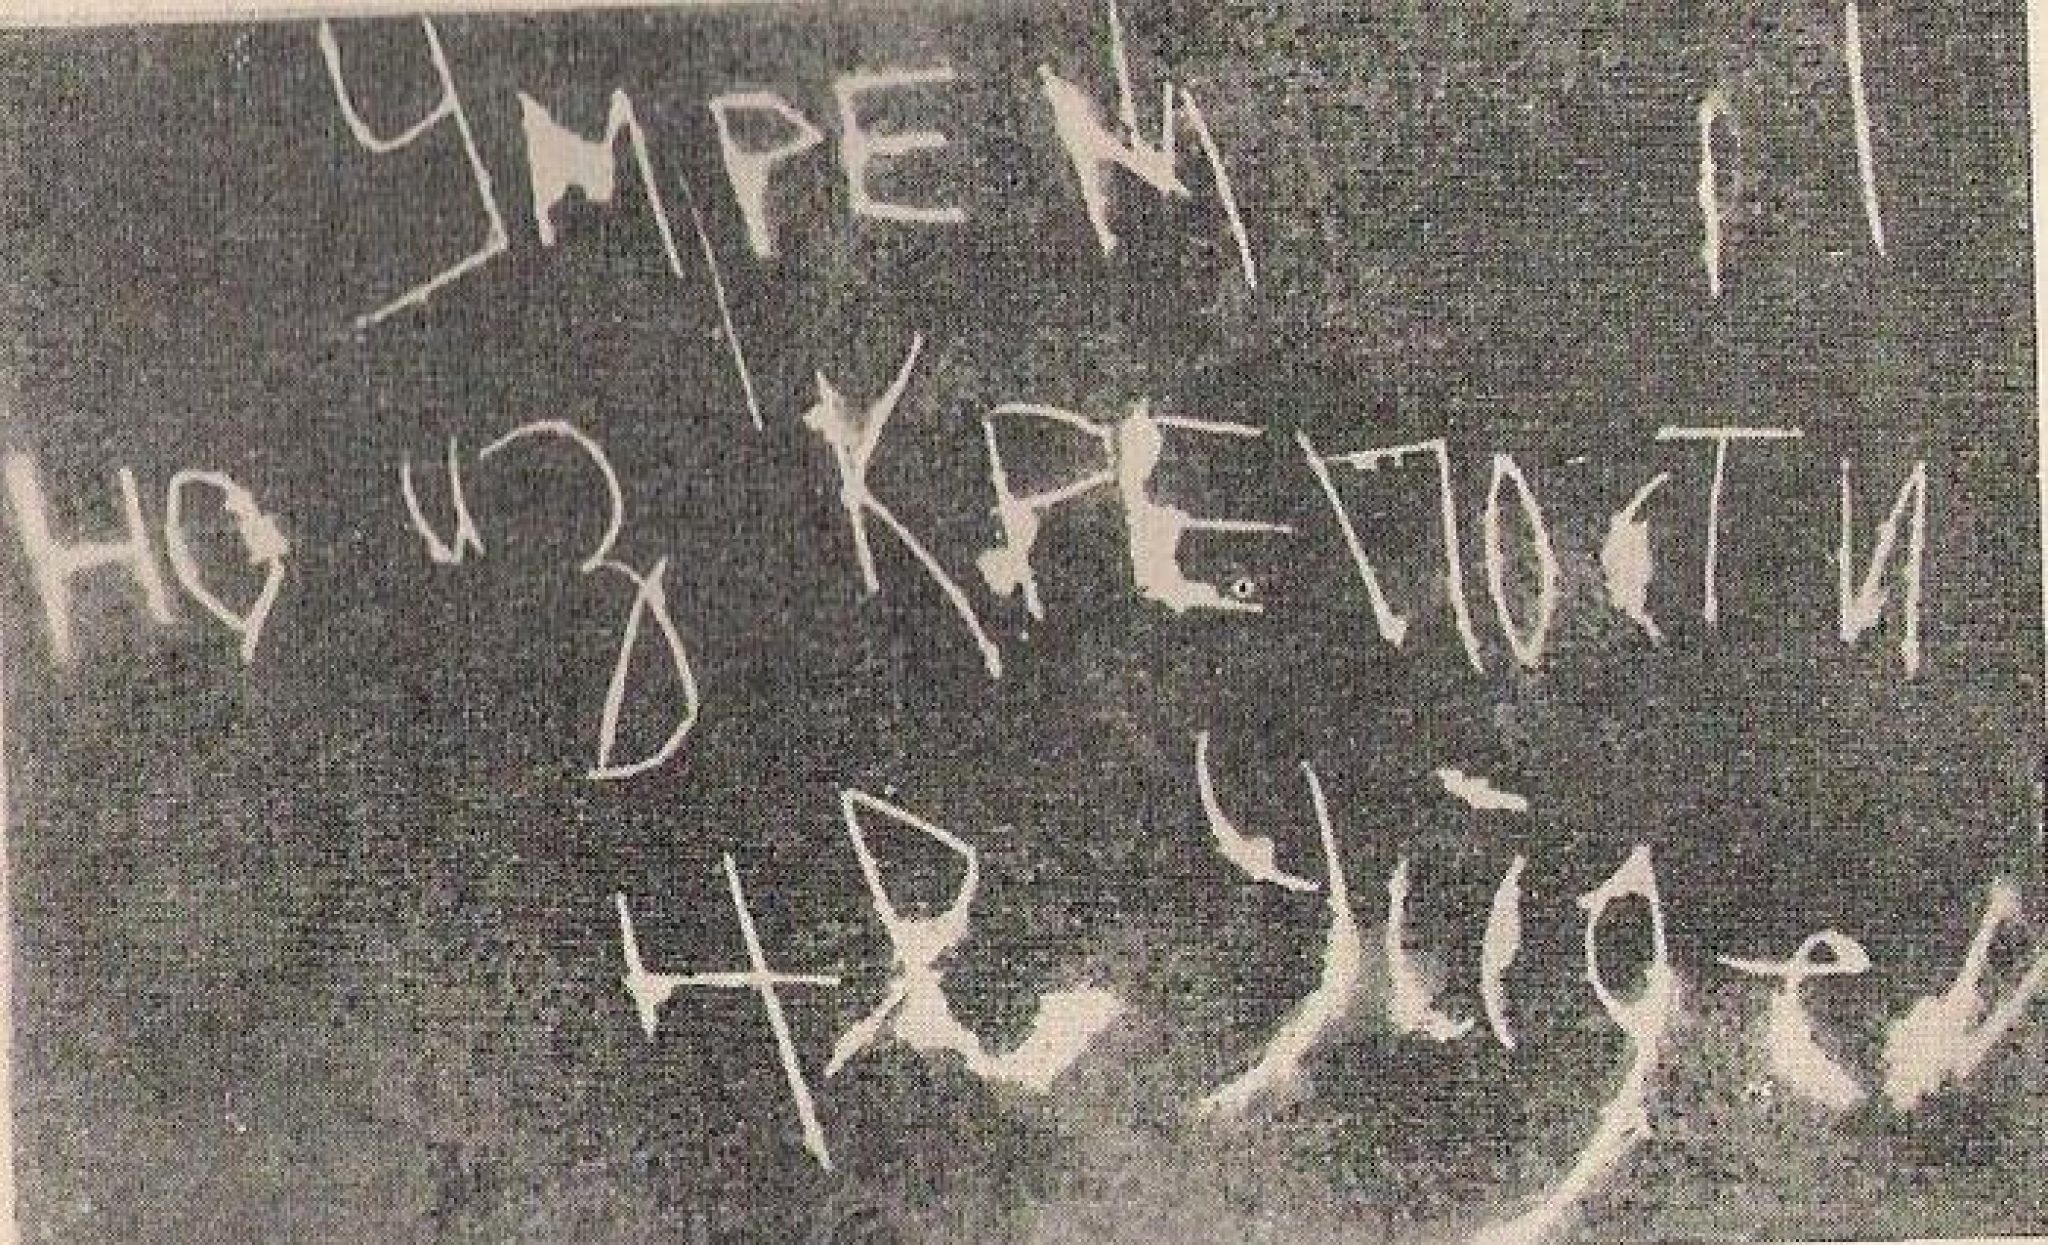 УМРЕМ,
НО ИЗ КРЕПОСТИ
НЕ Уйдем